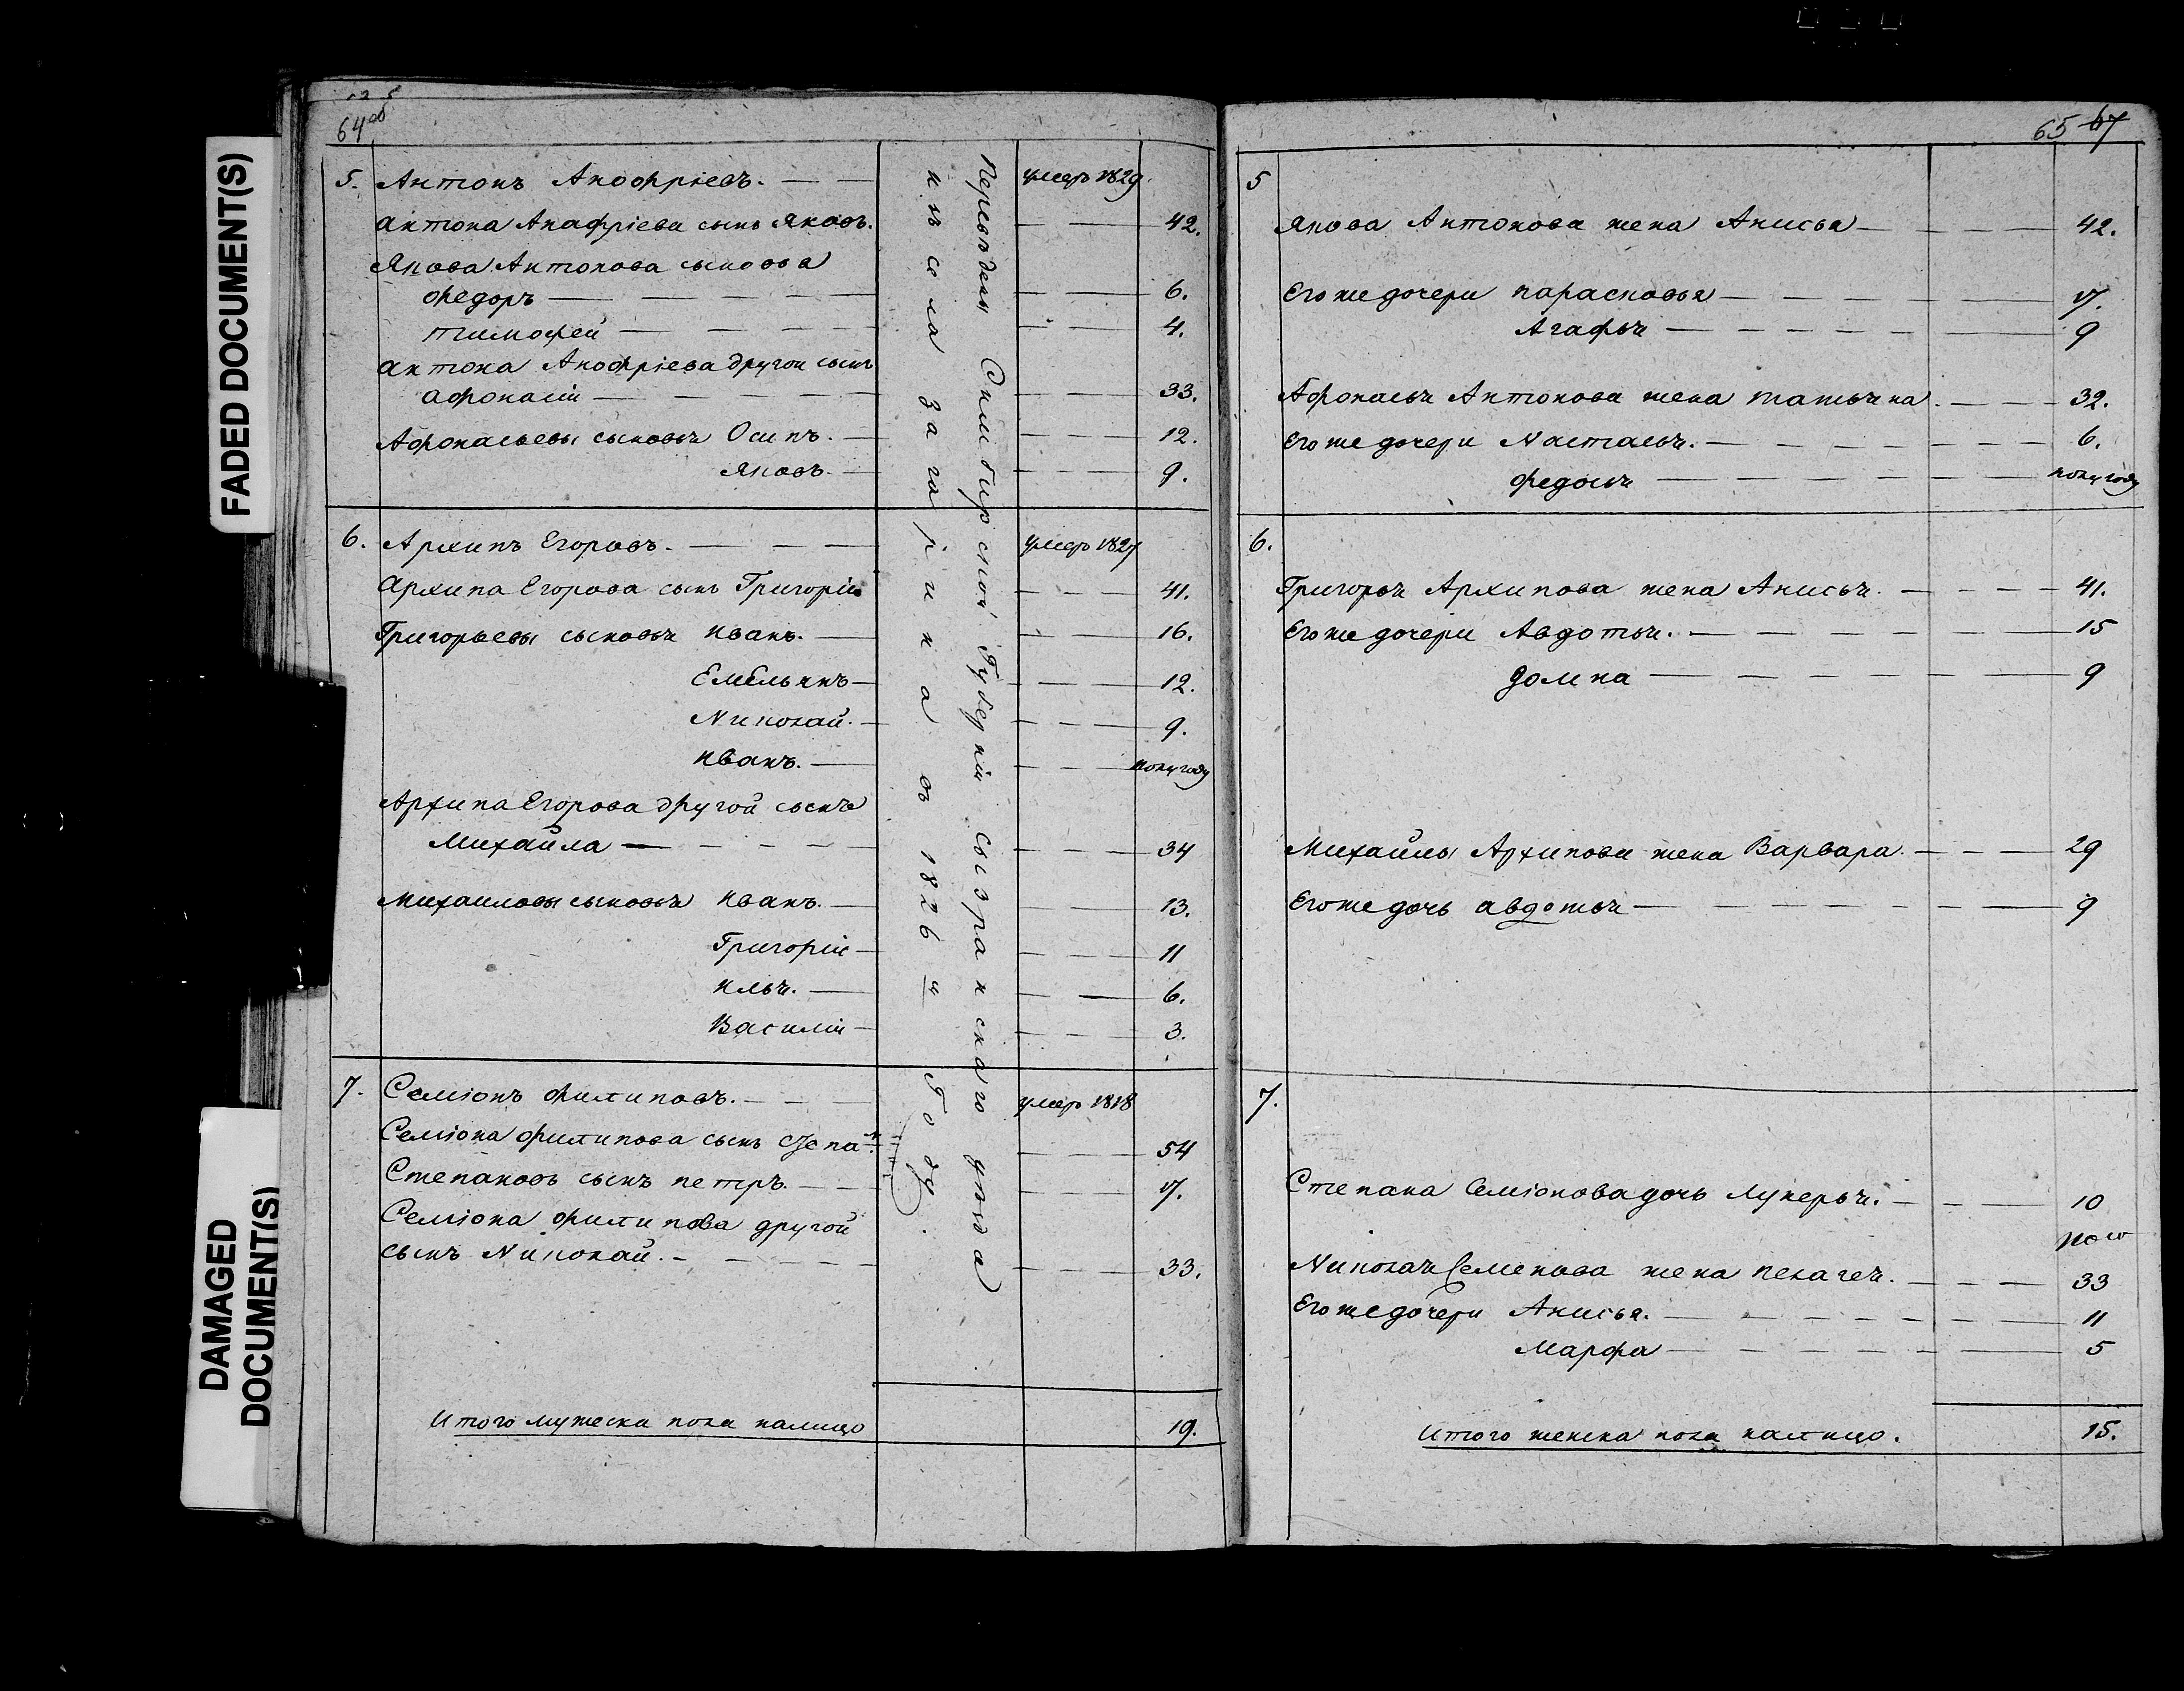 FADED DOCUMENT(S)
DAMAGED
DOCUMENT(S)
64 об
5. Антонъ Анофріевъ. умеръ 1829
Антона Анафріева сынъ Яковъ. 42.
Якова Антонова сыновья
Федоръ 6.
Тимофей 4.
Антона Анофріева другой сынъ
Афонасій 33.
Афонасьевы сыновья Осипъ. 12.
Яковъ. 9.
6. Архипъ Егоровъ. умеръ 1827
Архипа Егорова сынъ Григорій 41.
Григорьевы сыновья Иванъ. 16.
Емельянъ 12.
Николай. 9.
Иванъ. полугоду
Архипа Егорова другой сынъ
Михайла 34
Михаиловы сыновья Иванъ. 13.
Григорій 11
Илья. 6.
Василій 3.
7. Семіонъ Филиповъ. умеръ 1818
Семіона Филипова сынъ Степанъ 54
Степановъ сынъ Петръ. 17.
Семіона Филипова другой
сынъ Николай. 33.
Итого мужеска пола налицо 19.
Переведены Симбирской Губерніи Сызранскаго уезда
изъ села Загарина въ 1826 м Году.
65 67
5
Якова Антонова жена Анисья 42.
Его же дочери Парасковья 17.
Агафья 9
Афонасья Антонова жена Татьяна 32.
Его же дочери Настасья. 6.
Федосья полугоду
6.
Григорья Архипова жена Анисья. 41.
Его же дочери Авдотья. 15
Домна 9
Михайлы Архипова жена Варвара 29
Его же дочь Авдотья 9
7.
Степана Семіонова дочь Лукерья. 10
Николая Семенова жена Пелагея. 33
Его же дочери Анисья. 11
Марфа 5
Итого женска пола налицо. 15.